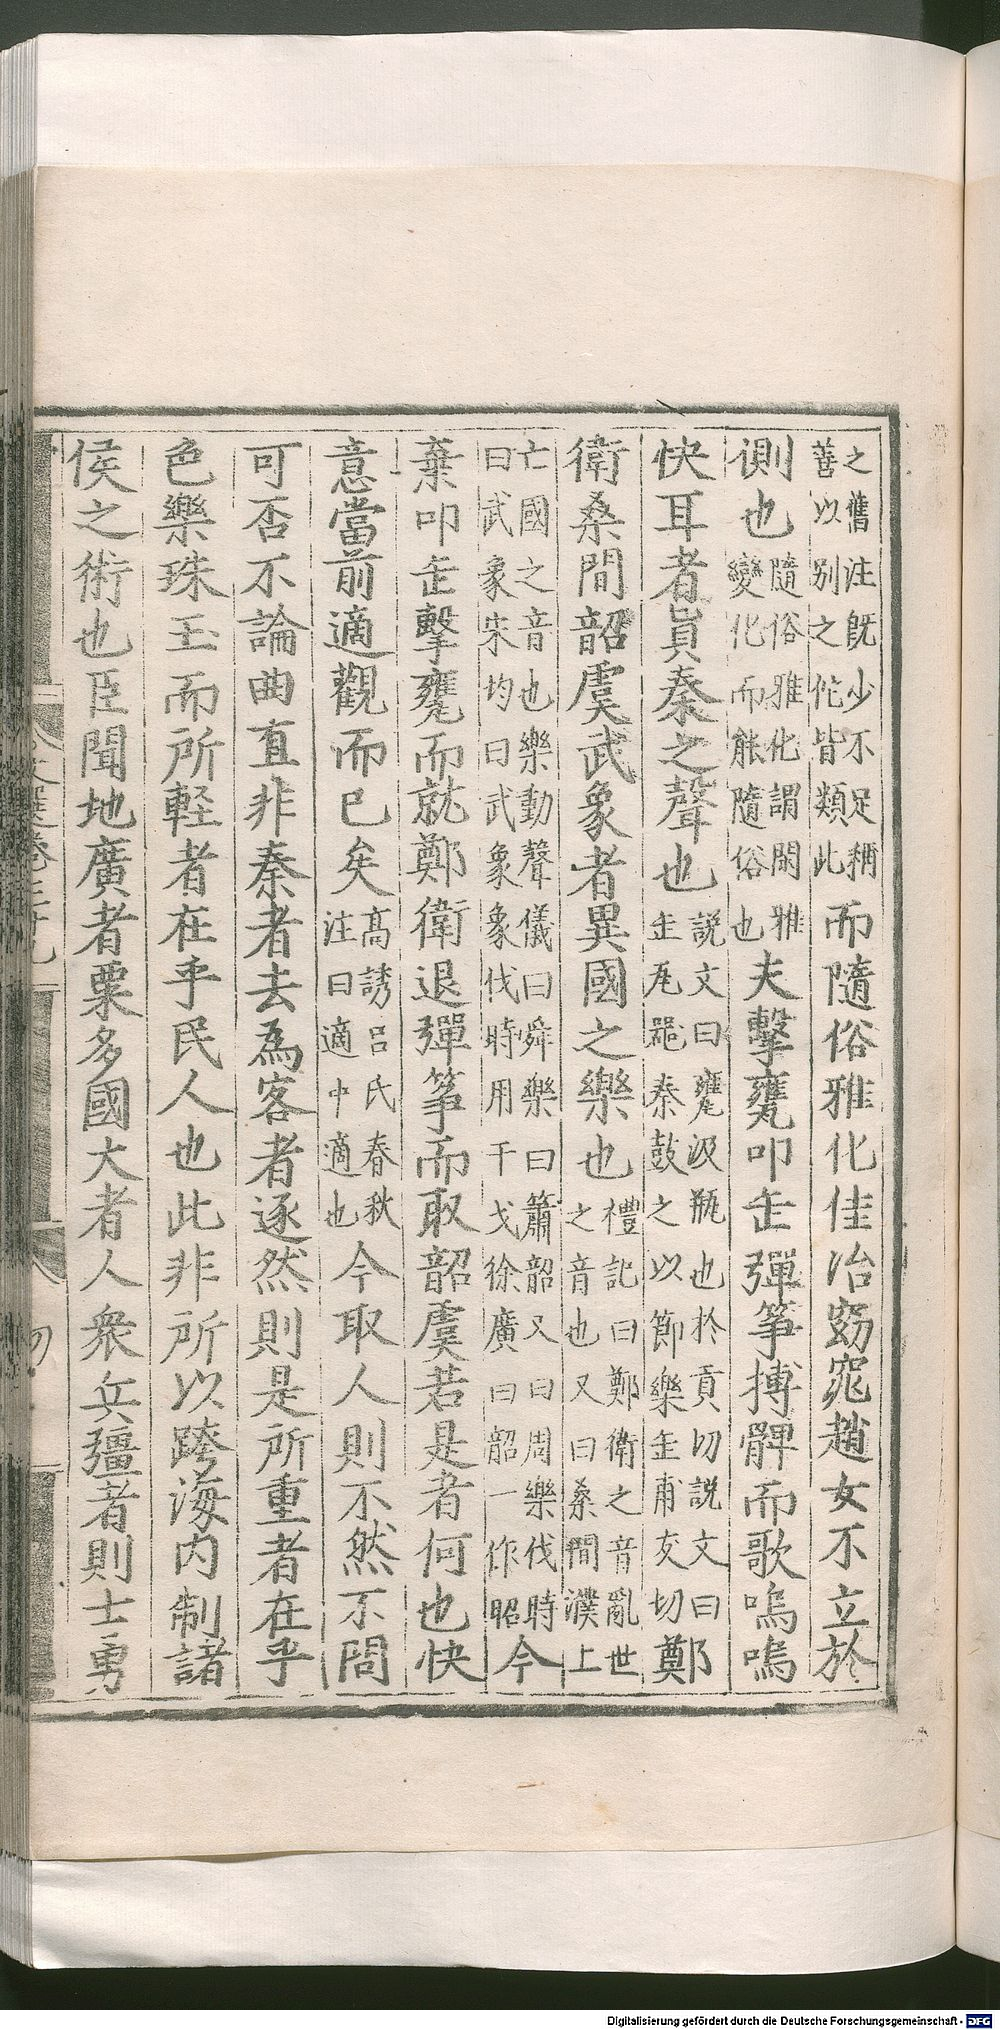 之舊注旣少不足稱
善以別之佗皆類此
而隨俗雅化佳冶窈窕趙女不立於
側也
隨俗雅化謂閑雅
變化而能隨俗也
夫擊甕叩缶彈筝搏髀而歌嗚嗚
快耳者眞秦之聲也
説文曰甕汲瓶也於貢切説文曰
缶瓦器秦鼓之以節樂缶甫友切
鄭
衛桑間韶虞武象者異國之樂也
禮記曰鄭衛之音亂世
之音也又曰桑間濮上
亡國之音也樂動聲儀曰舜樂曰簫韶又曰周樂伐時
曰武象宋均曰武象象伐時用干戈徐廣曰韶一作昭
今
棄叩缶擊甕而就鄭衛退彈筝而取韶虞若是者何也快
意當前適觀而已矣
高誘吕氏春秋
注曰適中適也
今取人則不然不問
可否不論曲直非秦者去為客者逐然則是所重者在乎
色樂珠玉而所輕者在乎民人也此非所以跨海内制諸
侯之術也臣聞地廣者粟多國大者人衆兵彊者則士勇
文選卷三十九
Digitalisierung gefördert durch die Deutsche Forschungsgemeinschaft - DFG